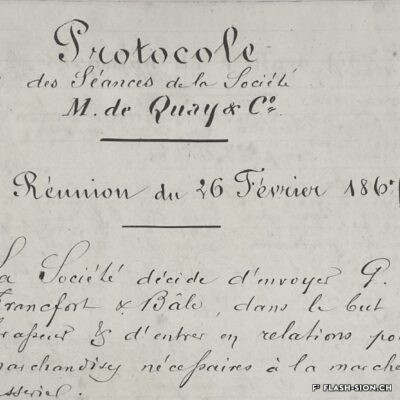 Protocole
des Séances de la Société
M. de Quay & Co.
Réunion du 26 Février 186
La Société décide d'envoyer G.
Francfort & Bâle, dans le but
brasseur & d'entrer en relations pou
marchandises nécessaires à la marche
sserie.
F° FLASH-SION.CH